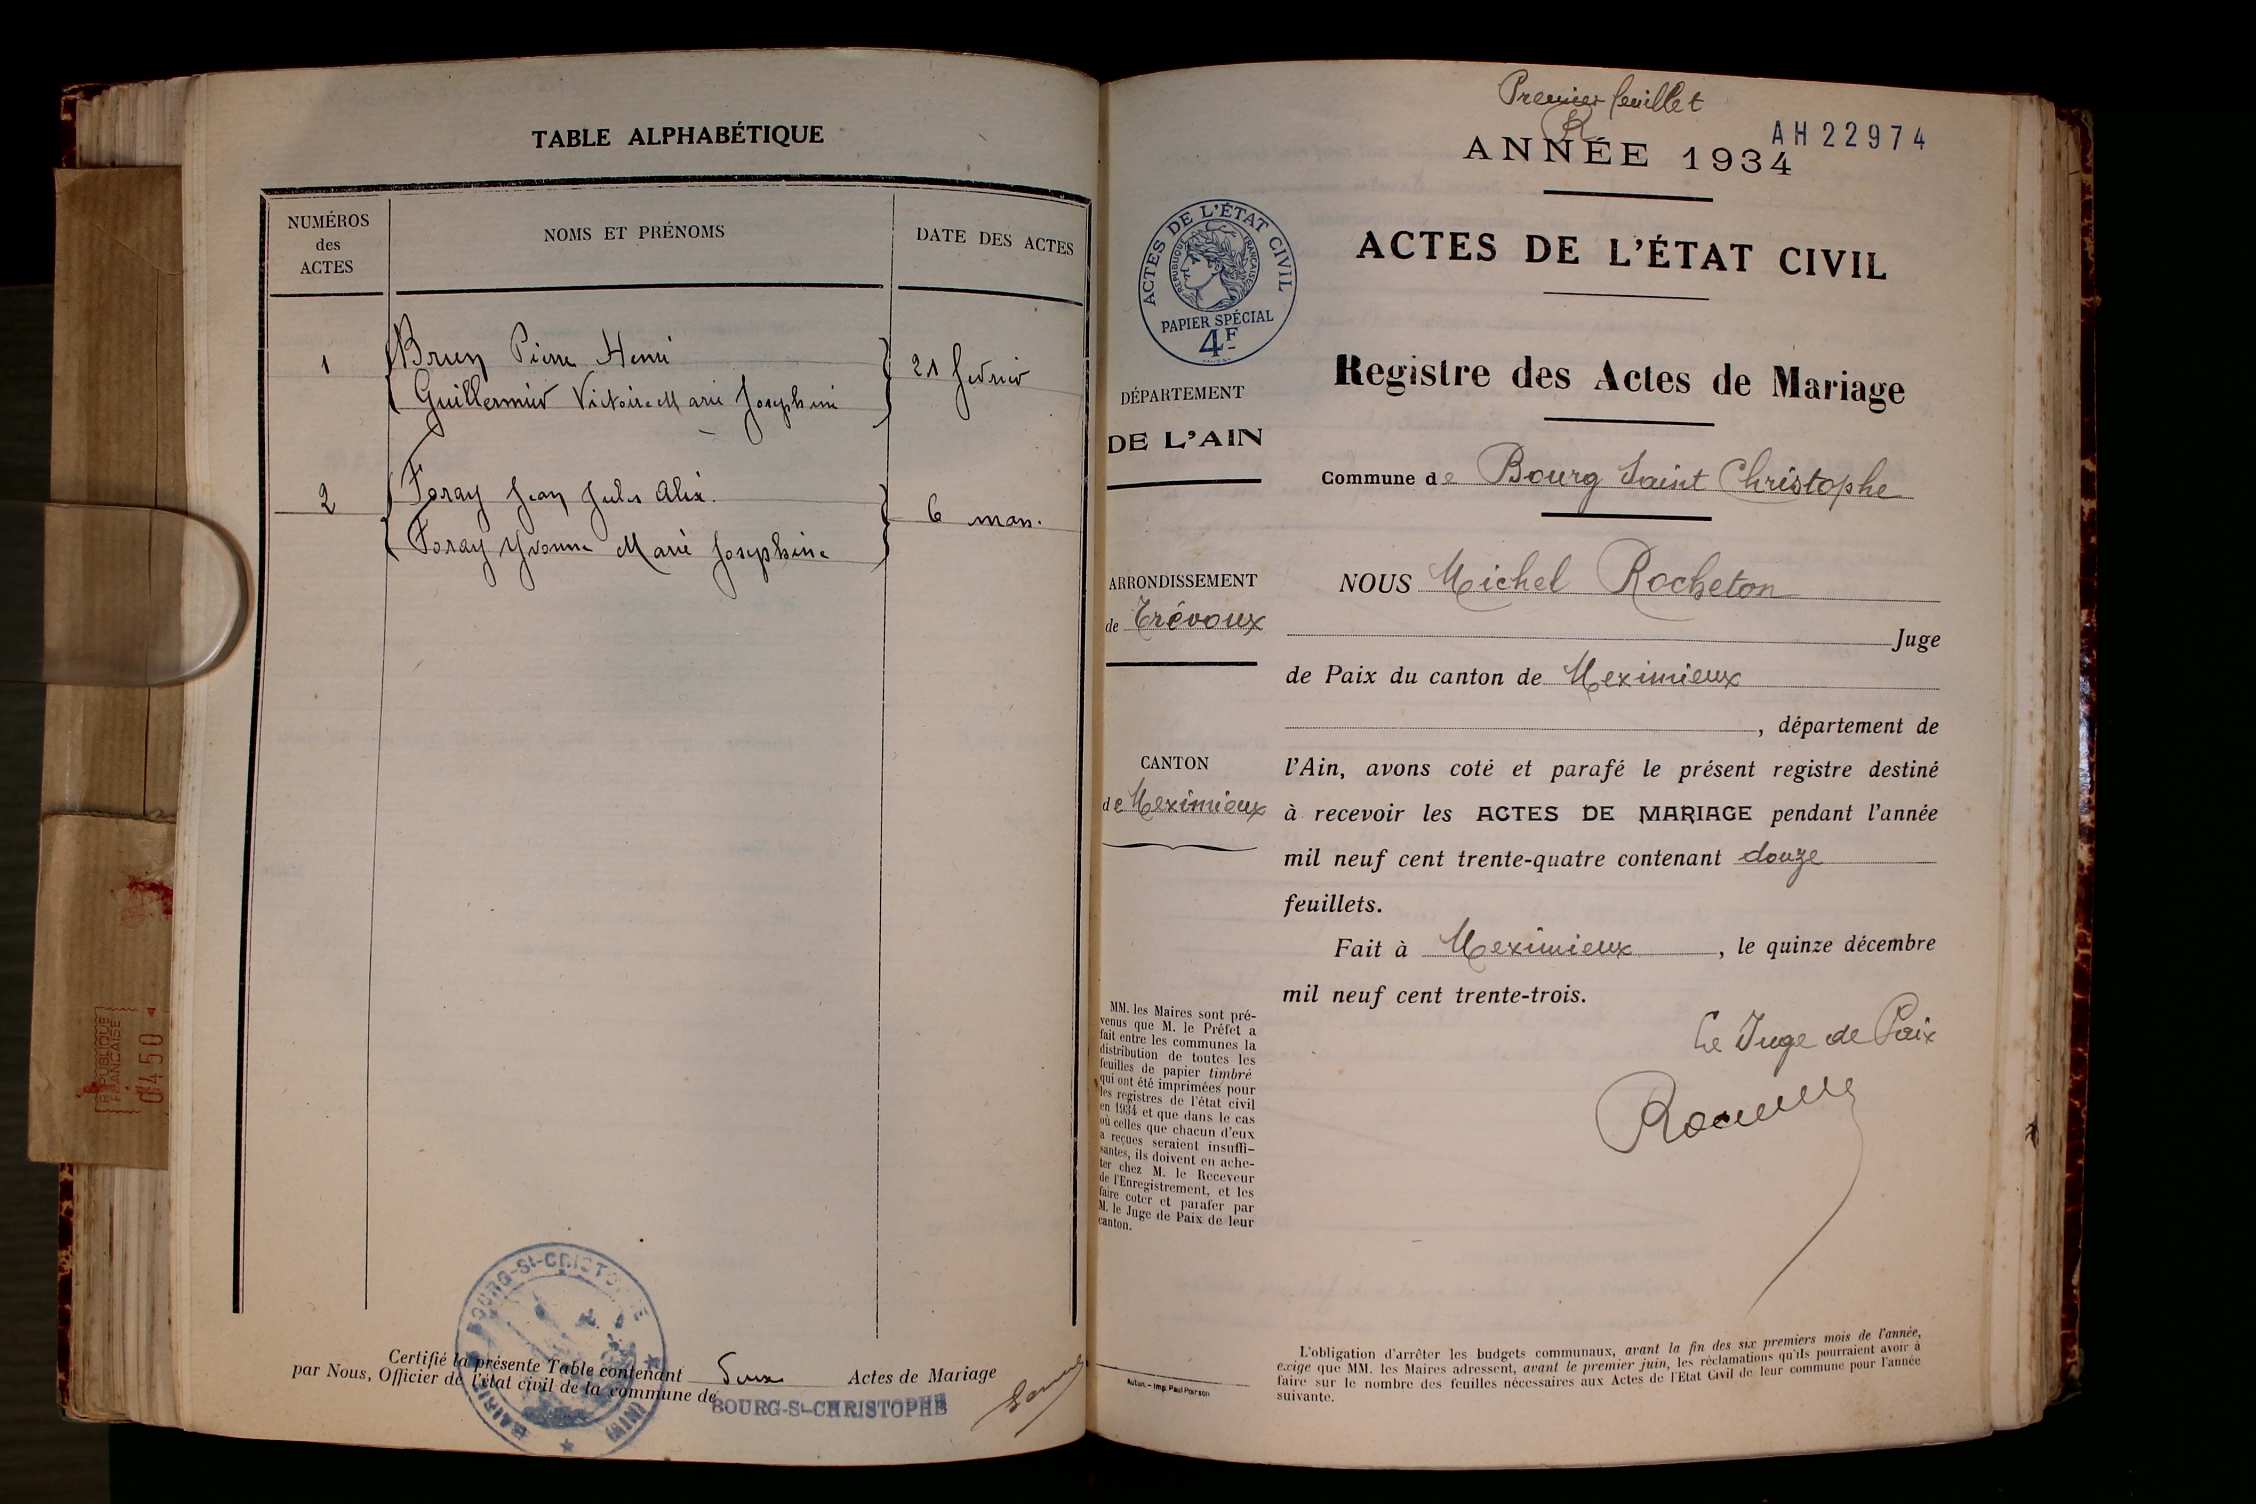 TABLE ALPHABÉTIQUE
NUMÉROS
des
ACTES
NOMS ET PRÉNOMS
DATE DES ACTES
1
Brun Pierre Henri
Guillermin Victoire Marie Josephine
21 fevrier
2
Foray Jean Jules
Foray Yvonne Marie Josephine
6 mars.
Certifié la présente Table contenant Deux Actes de Mariage
par Nous, Officier de l'état civil de la commune de
BOURG-St-CHRISTOPHE
RÉPUBLIQUE
FRANÇAISE
0450
Premier feuillet
AH22974
ANNÉE 1934
ACTES DE L'ÉTAT CIVIL
RÉPUBLIQUE FRANÇAISE
PAPIER SPÉCIAL
4F
ACTES DE L'ÉTAT CIVIL
Registre des Actes de Mariage
Commune de Bourg Saint Christophe
DÉPARTEMENT
DE L'AIN
ARRONDISSEMENT
de Trévoux
CANTON
de Meximieux
MM. les Maires sont pré-
venus que M. le Préfet a
fait entre les communes la
distribution de toutes les
feuilles de papier timbré
qui ont été imprimées pour
les registres de l'état civil
en 1934 et que dans le cas
où celles que chacun d'eux
a reçues seraient insuffi-
santes, ils doivent en ache-
ter chez M. le Receveur
de l'Enregistrement, et les
faire coter et parafer par
M. le Juge de Paix de leur
canton.
Autun. - Imp. Paul Poirson
NOUS Michel Rocheton
Juge
de Paix du canton de Meximieux
, département de
l'Ain, avons coté et parafé le présent registre destiné
à recevoir les ACTES DE MARIAGE pendant l'année
mil neuf cent trente-quatre contenant douze
feuillets.
Fait à Meximieux, le quinze décembre
mil neuf cent trente-trois.
Le Juge de Paix
L'obligation d'arrêter les budgets communaux, avant la fin des six premiers mois de l'année,
exige que MM. les Maires adressent, avant le premier juin, les réclamations qu'ils pourraient avoir à
faire sur le nombre des feuilles nécessaires aux Actes de l'Etat Civil de leur commune pour l'année
suivante.